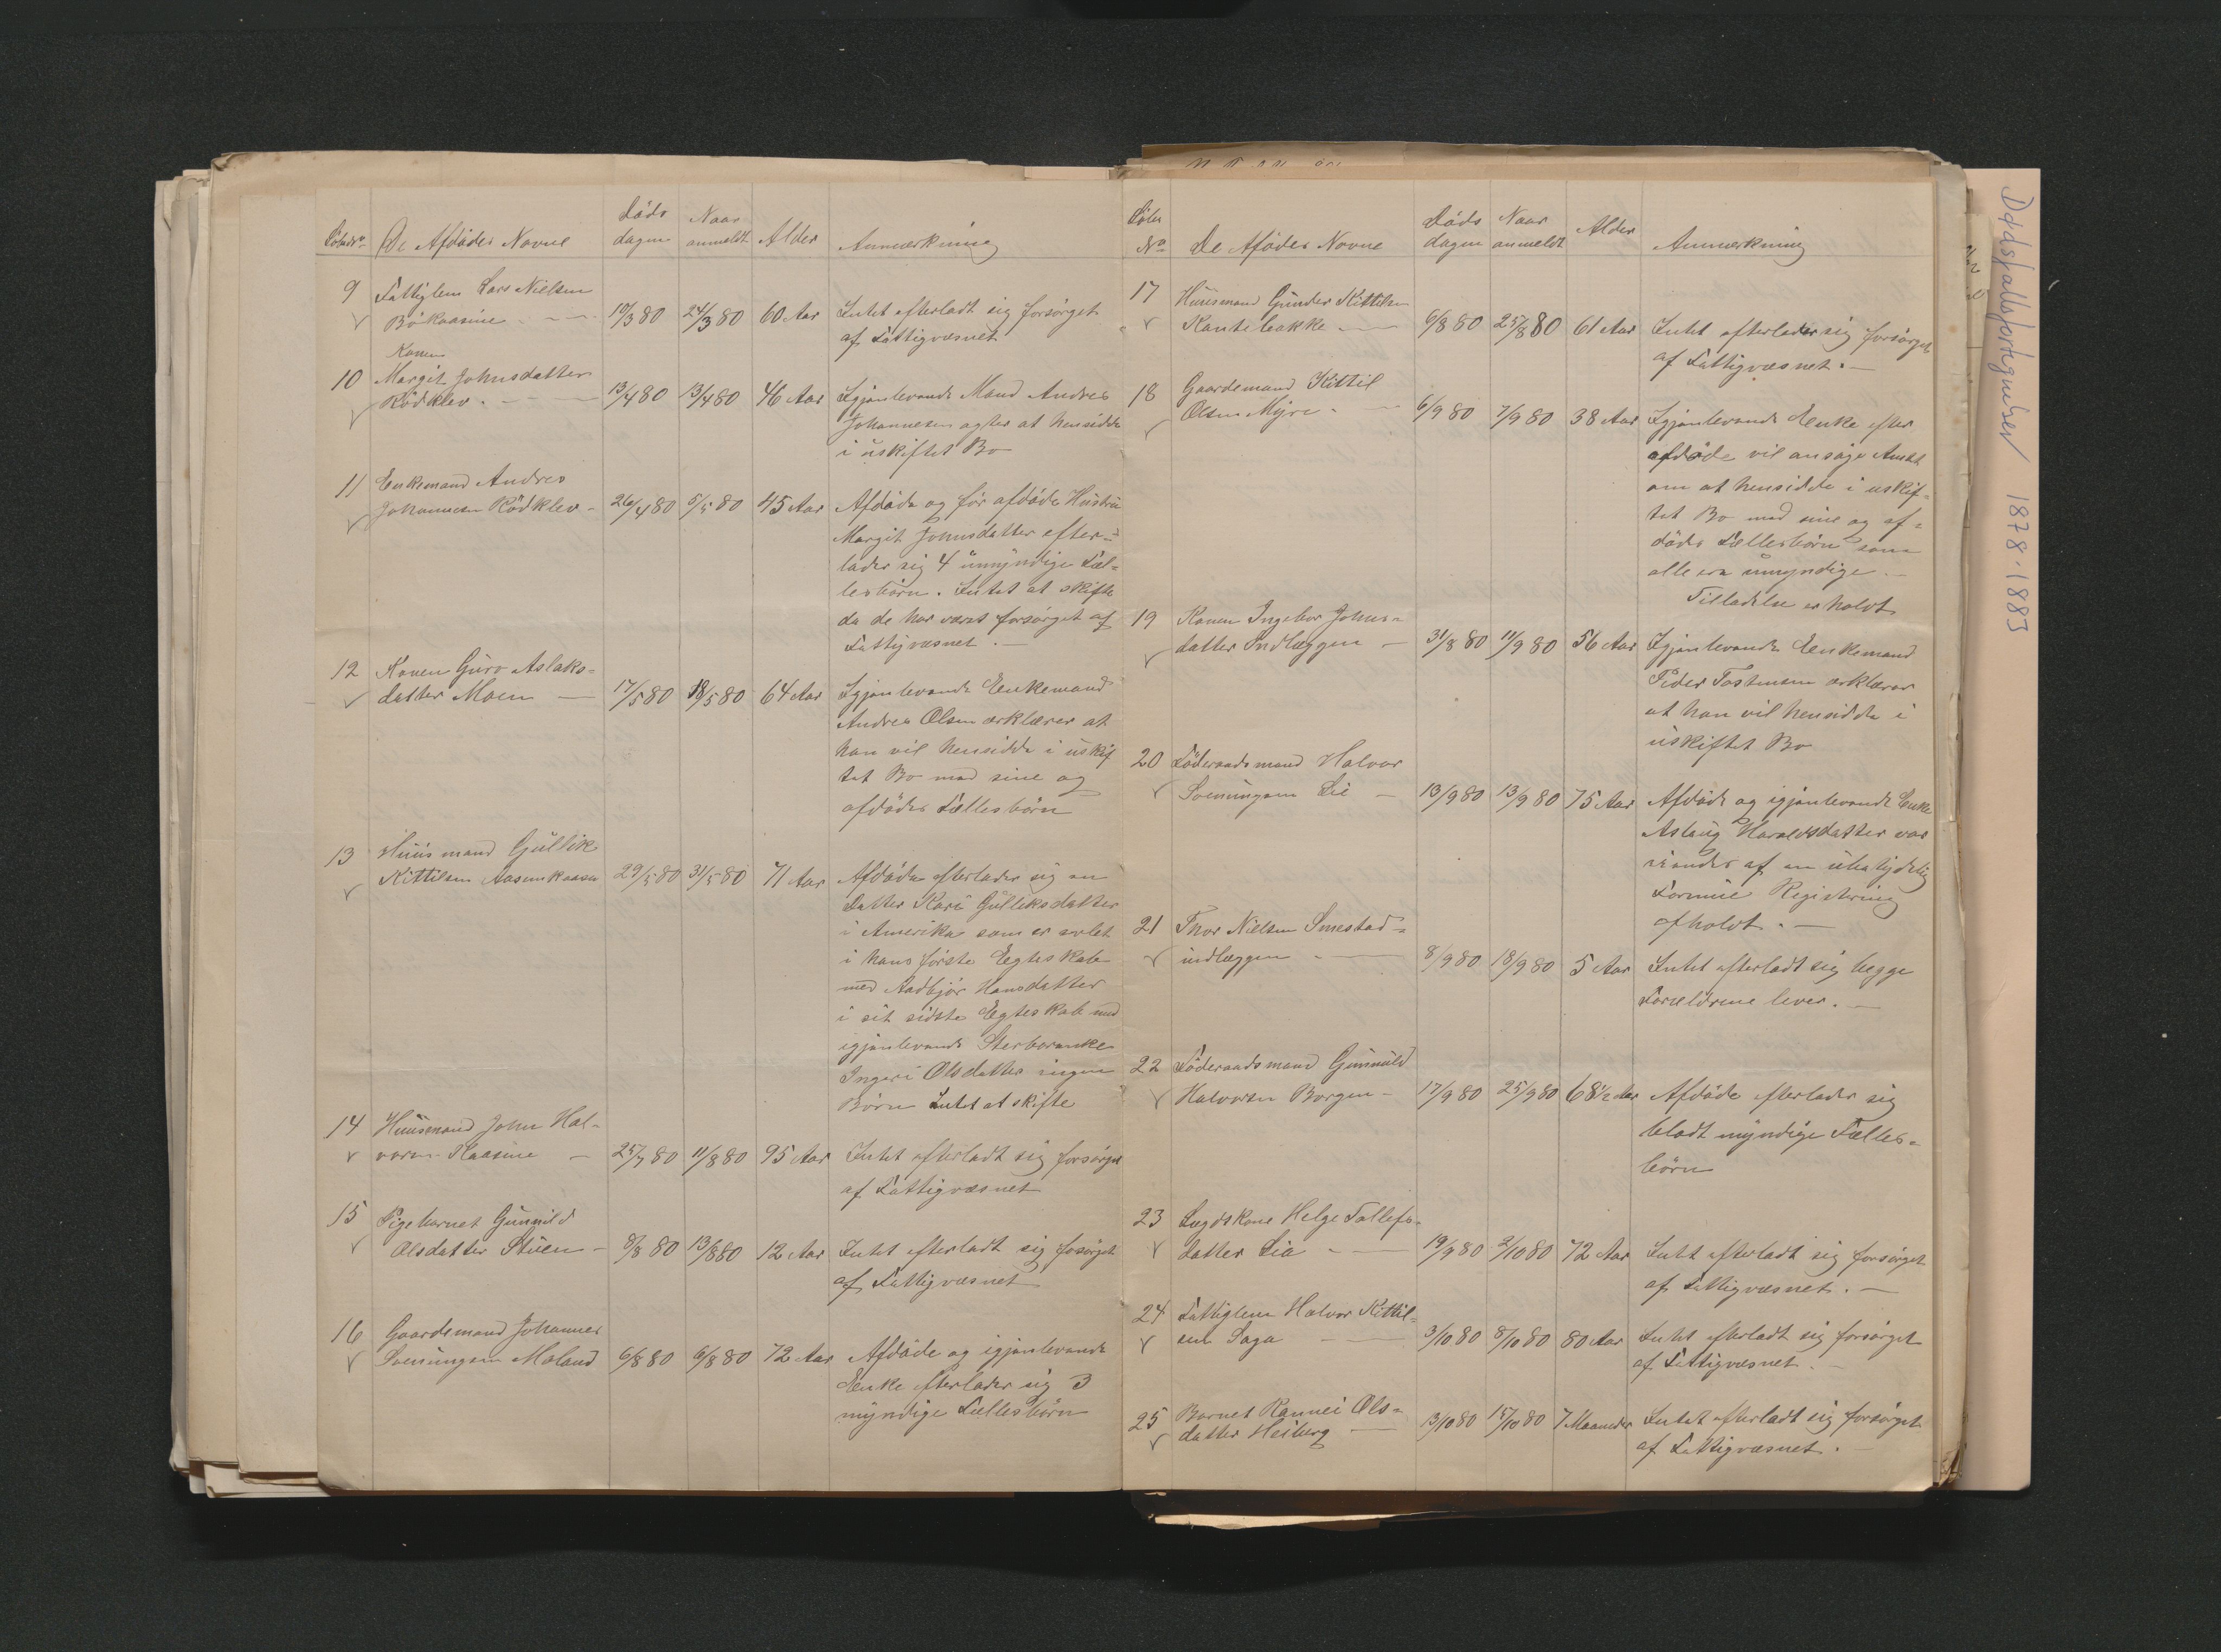 Löbe No De Afdödes Navne Döds dagen Naar anmeldt Alder Anmærkning
9 Fattiglem Lars Nielsen
Bökaasine 19/3 80 24/3 80 60 Aar Intet efterladt sig forsörget
af Fattigvæsnet
Konen
10 Margit Johnsdatter
Rödklev. 13/4 80 13/4 80 46 Aar Igjenlevende Mand Andres
Johannesen agter at hensidde
i uskiftet Bo
11 Enkemand Andres
Johannesen Rödklev 26/4 80 5/5 80 45 Aar Afdöde og för afdöde Hustru
Margit Johnsdatter efter-
lader sig 4 umyndige Fæl-
lesbörn. Intet at skifte
da de har været forsörget af
Fattigvæsnet.
12 Konen Guro Aslaks-
datter Moen 17/5 80 18/5 80 64 Aar Igjenlevende Enkemand
Andres Olsen erklærer at
han vil hensidde i uskif
tet Bo med sine og
afdödes Fællesbörn
13 Huusmand Gullik
Kittilsen Aasenkaasa 29/5 80 31/5 80 71 Aar Afdöde efterlader sig en
Datter Kari Gulleksdatter
i Amerika som er avlet
i hans förste Egteskab
med Aadbjör Hansdatter
i sit sidste Egteskab med
igjenlevende Sterboenke
Ingeri Olsdatter ingen
Börn Intet at skifte
14 Huusmand John Hal-
vorsen Kaasine 25/7 80 11/8 80 95 Aar Intet efterladt sig forsörget
af Fattigvæsnet
15 Pigebarnet Gunnild
Olsdatter Stuen 8/8 80 13/8 80 12 Aar Intet efterladt sig fosörget
af Fattigvæsnet
16 Gaardemand Johannes
Sveinungsen Moland 6/8 80 6/8 80 72 Aar Afdöde og igjenlevende
Enke efterlader sig 3
myndige Fællesbörn
Löbe No De Afödes Navne Döds dagen Naar anmeldt Alder Anmærkning
17 Huusmand Gunder Kittilsen
Kantebakke 6/8 80 25/8 80 61 Aar Intet efterlader sig forsörget
af Fattigvæsnet.
18 Gaardemand Kittil
Olsen Myre 6/9 80 7/9 80 38 Aar Igjenlevende Enke efter
afdöde vil ansöge Amtet
om at hensidde i uskif-
tet Bo med sine og af-
dödes Fællesbörn som
alle ere umyndige.
Tilladelse erholdt
19 Konen Ingebor Johns-
datter Indlæggen 31/8 80 11/9 80 56 Aar Igjenlevende Enkemand
Peder Tostensen erklærer
at han vil hensidde i
uskiftet Bo
20 Föderaadsmand Halvor
Sveinungsen Lie 13/9 80 13/9 80 75 Aar Afdöde og igjenlevende Enke
Aslaug Haraldsdatter var
i en ubetydelig
Formue Registering
afholdt.
21 Thor Nielsen Smestad-
indlæggen 8/9 80 18/9 80 5 Aar Intet efterladt sig begge
Forældrene lever.
22 Föderaadsmand Gunnuld
Halvorsen Borgen 17/9 80 25/9 80 68 1/2 Aar Afdöde efterlader sig
bladt myndige Fælles-
börn
23 Lægdskone Helge Tollefs-
datter Lia 19/9 80 2/10 80 72 Aar Intet efterladt sig forsörget
af Fattigvæsnet.
24 Fattiglem Halvor Kittil-
sen Saga 3/10 80 8/10 80 80 Aar Intet efterladt sig forsörget
af Fattigvæsnet.
25 Barnet Rannei Ols-
datter Heiberg 13/10 80 15/10 80 7 Maaneder Intet efterladt sig forsörget
af Fattigvæsnet.
Dødsfallsfortegnelser 1878-1883